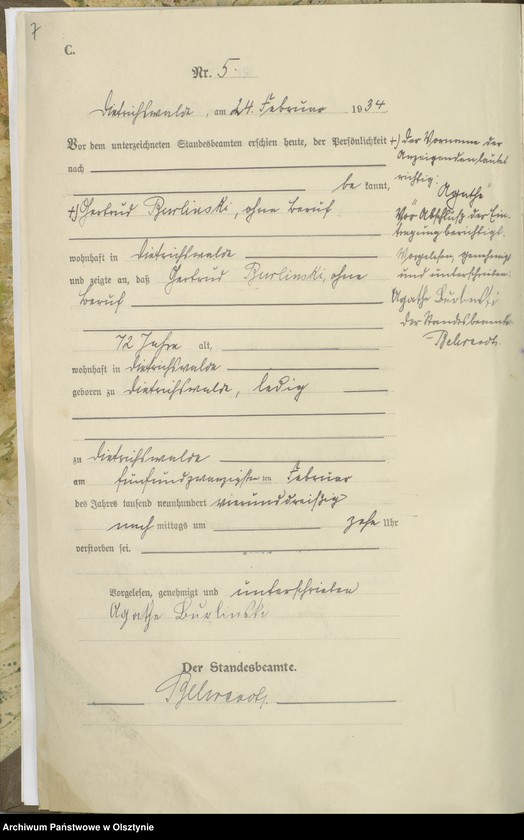 7
C.
Nr. 5.
Dietrichswalde, am 24. Februar 1934
Vor dem unterzeichneten Standesbeamten erschien heute, der Persönlichkeit
nach
bekannt,
+) Gertrud Burlinski, ohne Beruf
wohnhaft in Dietrichswalde
und zeigte an, daß Gertrud Burlinski, ohne
Beruf
72 Jahre alt,
wohnhaft in Dietrichswalde
geboren zu Dietrichswalde, ledig
zu Dietrichswalde
am fünfundzwanzigsten Februar
des Jahres tausend neunhundert vierunddreißig
nach mittags um zehn Uhr
verstorben sei.
Vorgelesen, genehmigt und unterschrieben
Agathe Burlinski
Der Standesbeamte.
Behrendt.
+) Der Vorname der
Anzeigenden lautet
richtig:
"Agathe"
Vor Abschluß der Ein-
tragung berichtigt.
Vorgelesen, genehmigt
und unterschrieben:
Agathe Burlinski
Der Standesbeamte
Behrendt.
Archiwum Państwowe w Olsztynie